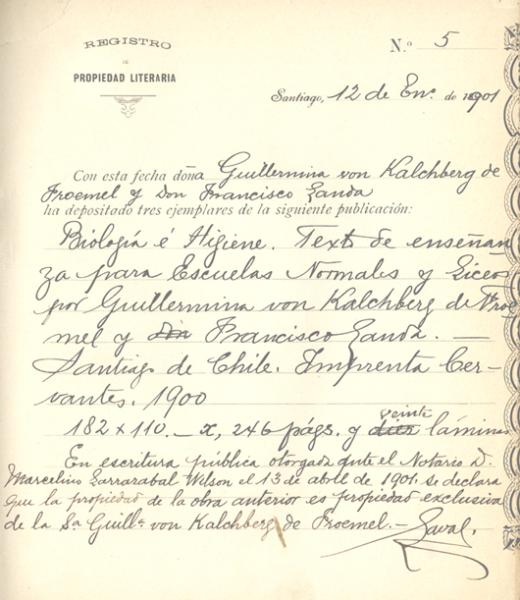 REGISTRO
DE
PROPIEDAD LITERARIA
N.º 5
Santiago, 12 de En.º de 1901
Con esta fecha doña Guillermina von Kalchberg de
Froemel y Don Francisco Zanda
ha depositado tres ejemplares de la siguiente publicación:
Biología é Higiene. Texto de enseñan-
za para Escuelas Normales y Liceos
por Guillermina von Kalchberg de Froe-
mel y Don Francisco Zanda. —
Santiago de Chile. Imprenta Cer-
vantes. 1900
veinte
182 x 110. — x, 246 págs. y diez láminas
En escritura pública otorgada ante el Notario D.
Marcelino Larrazabal Wilson el 13 de abril de 1901. se declara
que la propiedad de la obra anterior es propiedad exclusiva
de la Sª Guillª von Kalchberg de Froemel. — Laval.